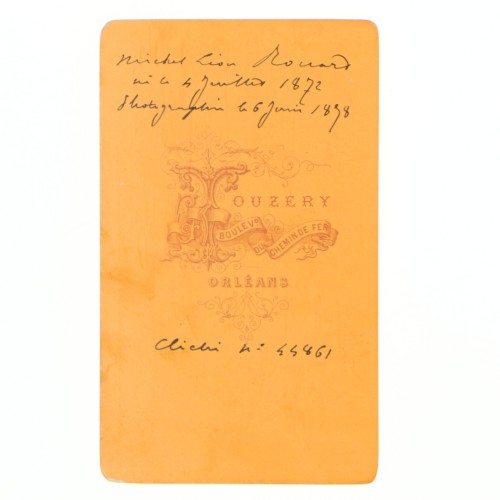 Michel Léon Rouard
né le 4 Juillet 1872
Photographié le 6 Juin 1878
TOUZERY
BOULEVD DU CHEMIN DE FER
ORLÉANS
Cliché no: 44861